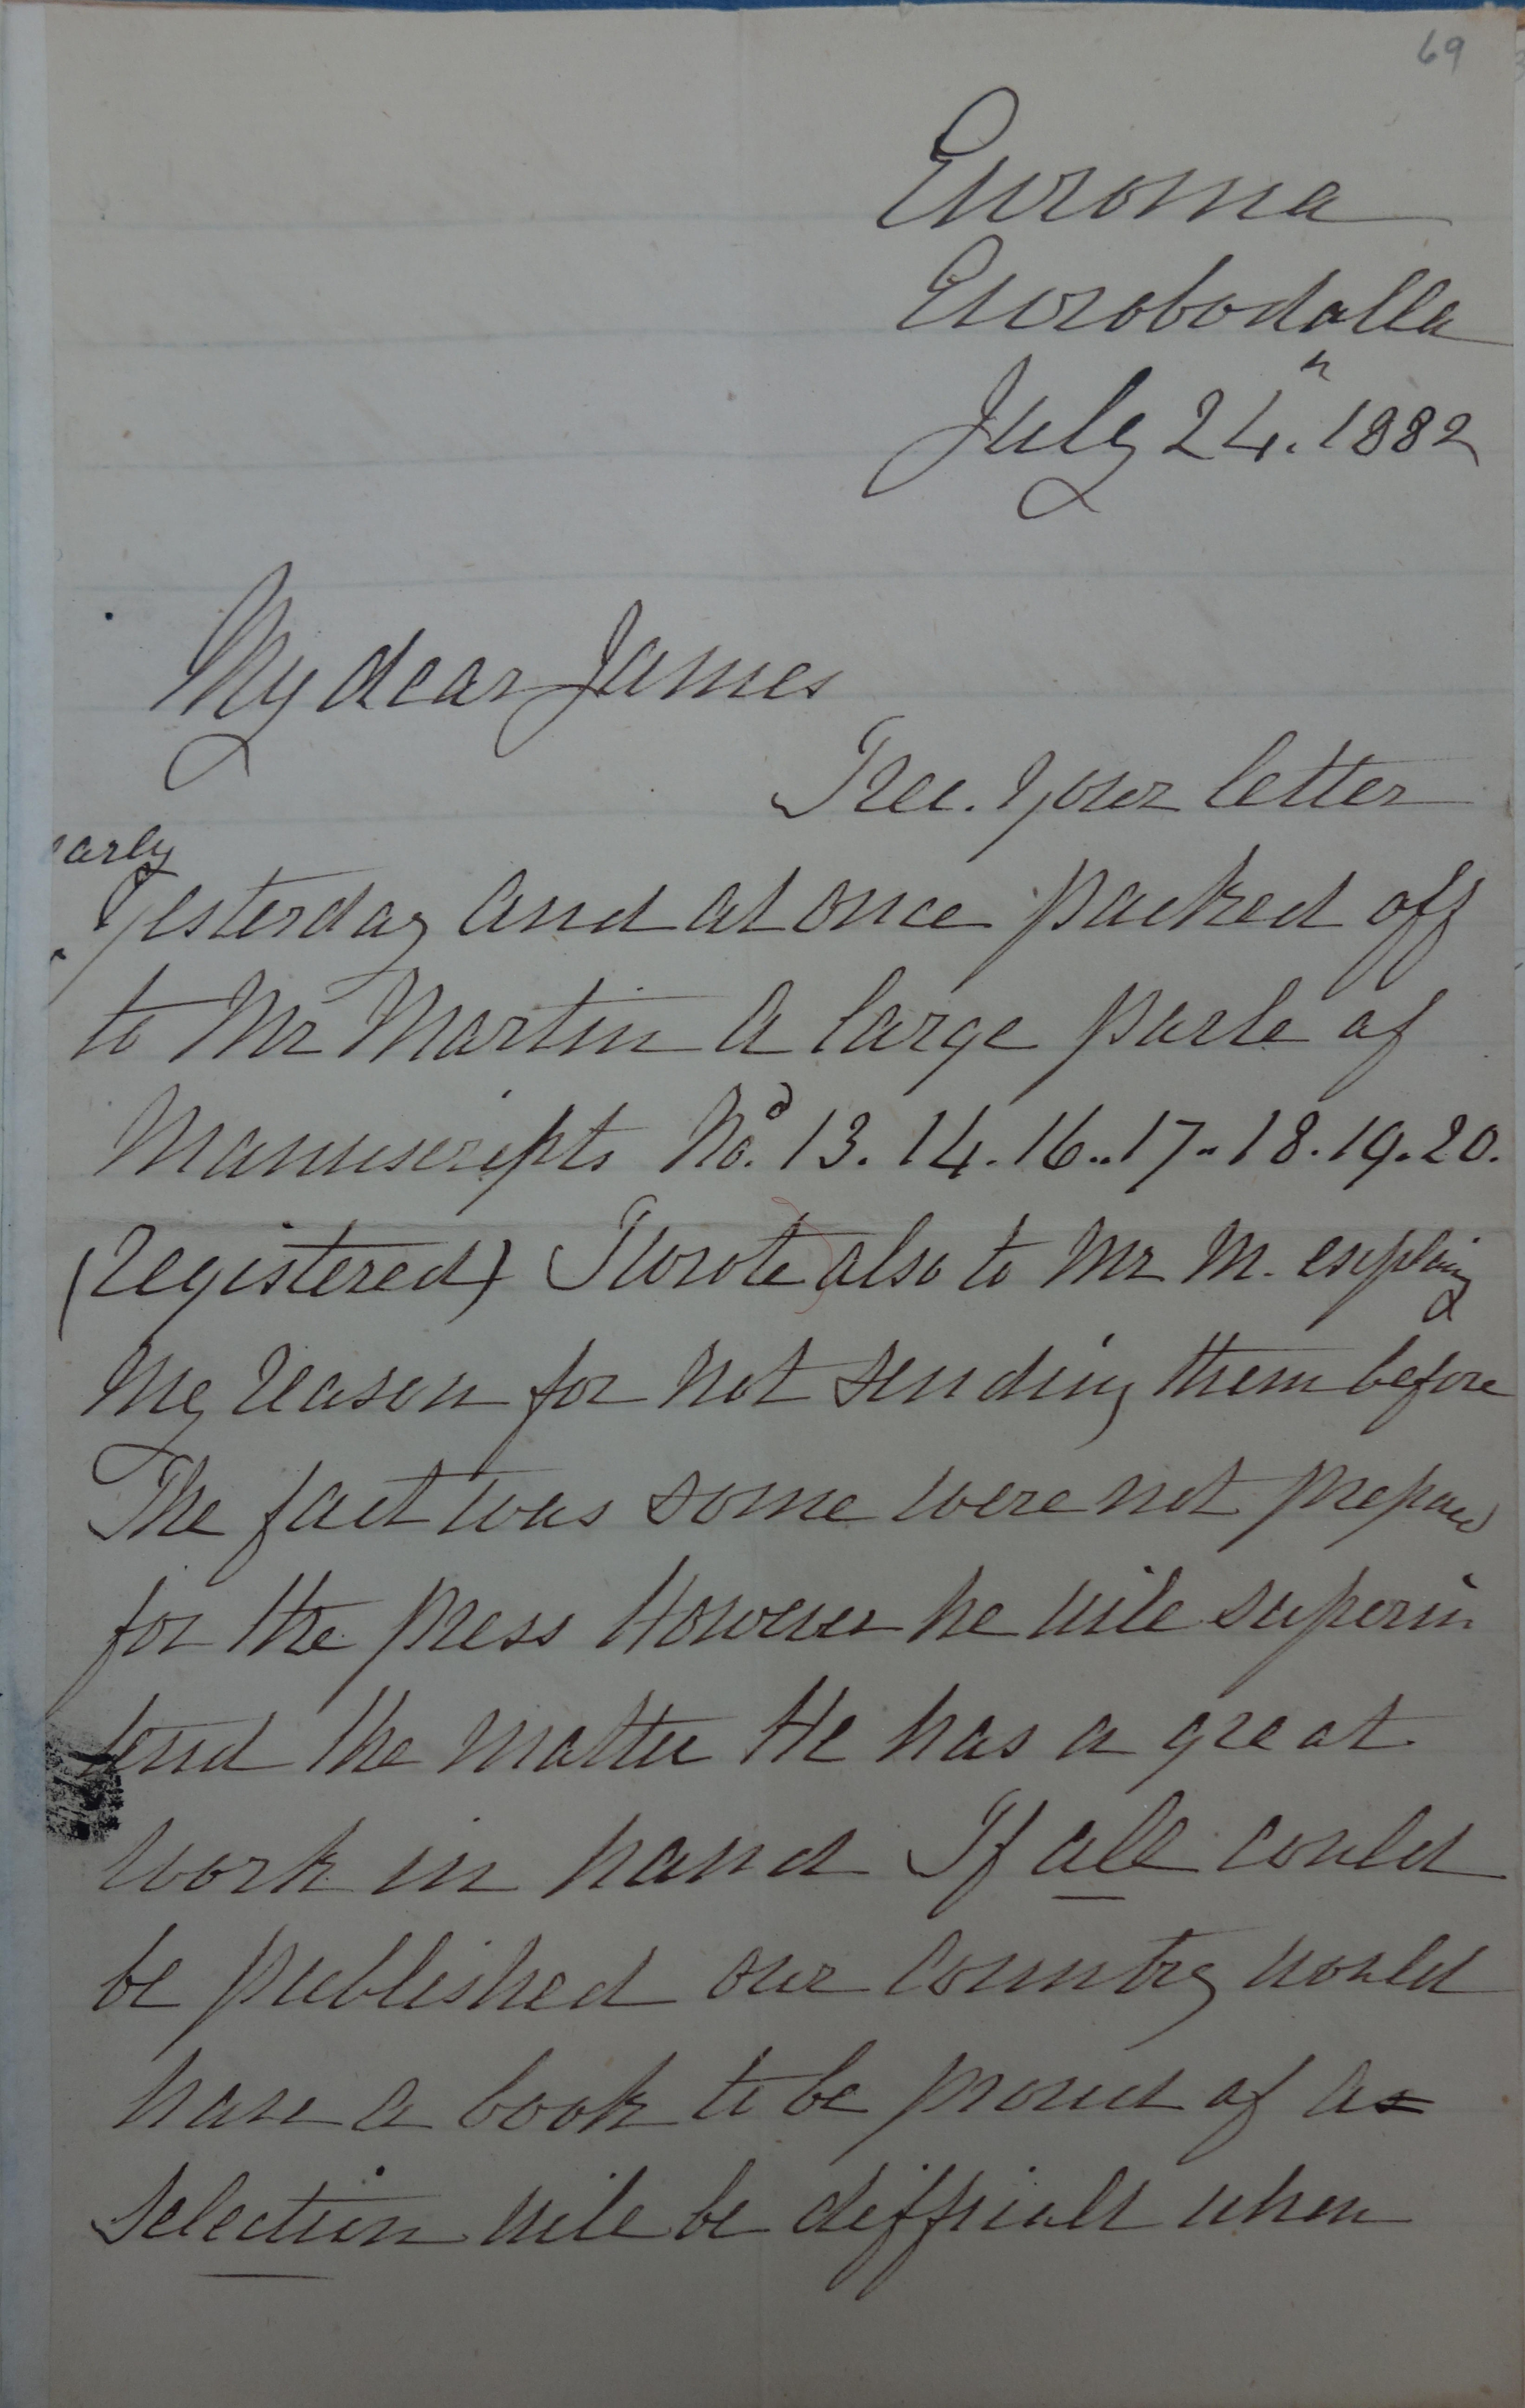 69
Euroma
Eurobodalla
July 24.th 1882
My dear James
I rec. your letter
early
yesterday and at once packed off
to Mr Martin a large parle of
Manuscripts No. 13. 14. 16..17..18.19.20.
(registered) I wrote also to Mr M. explaing
my reason for not sending them before
The fact was some were not prepared
for the press However he will superin
tend the matter He has a great
work in hand If all could
be published our country would
have a book to be proud of as
selection will be difficult when